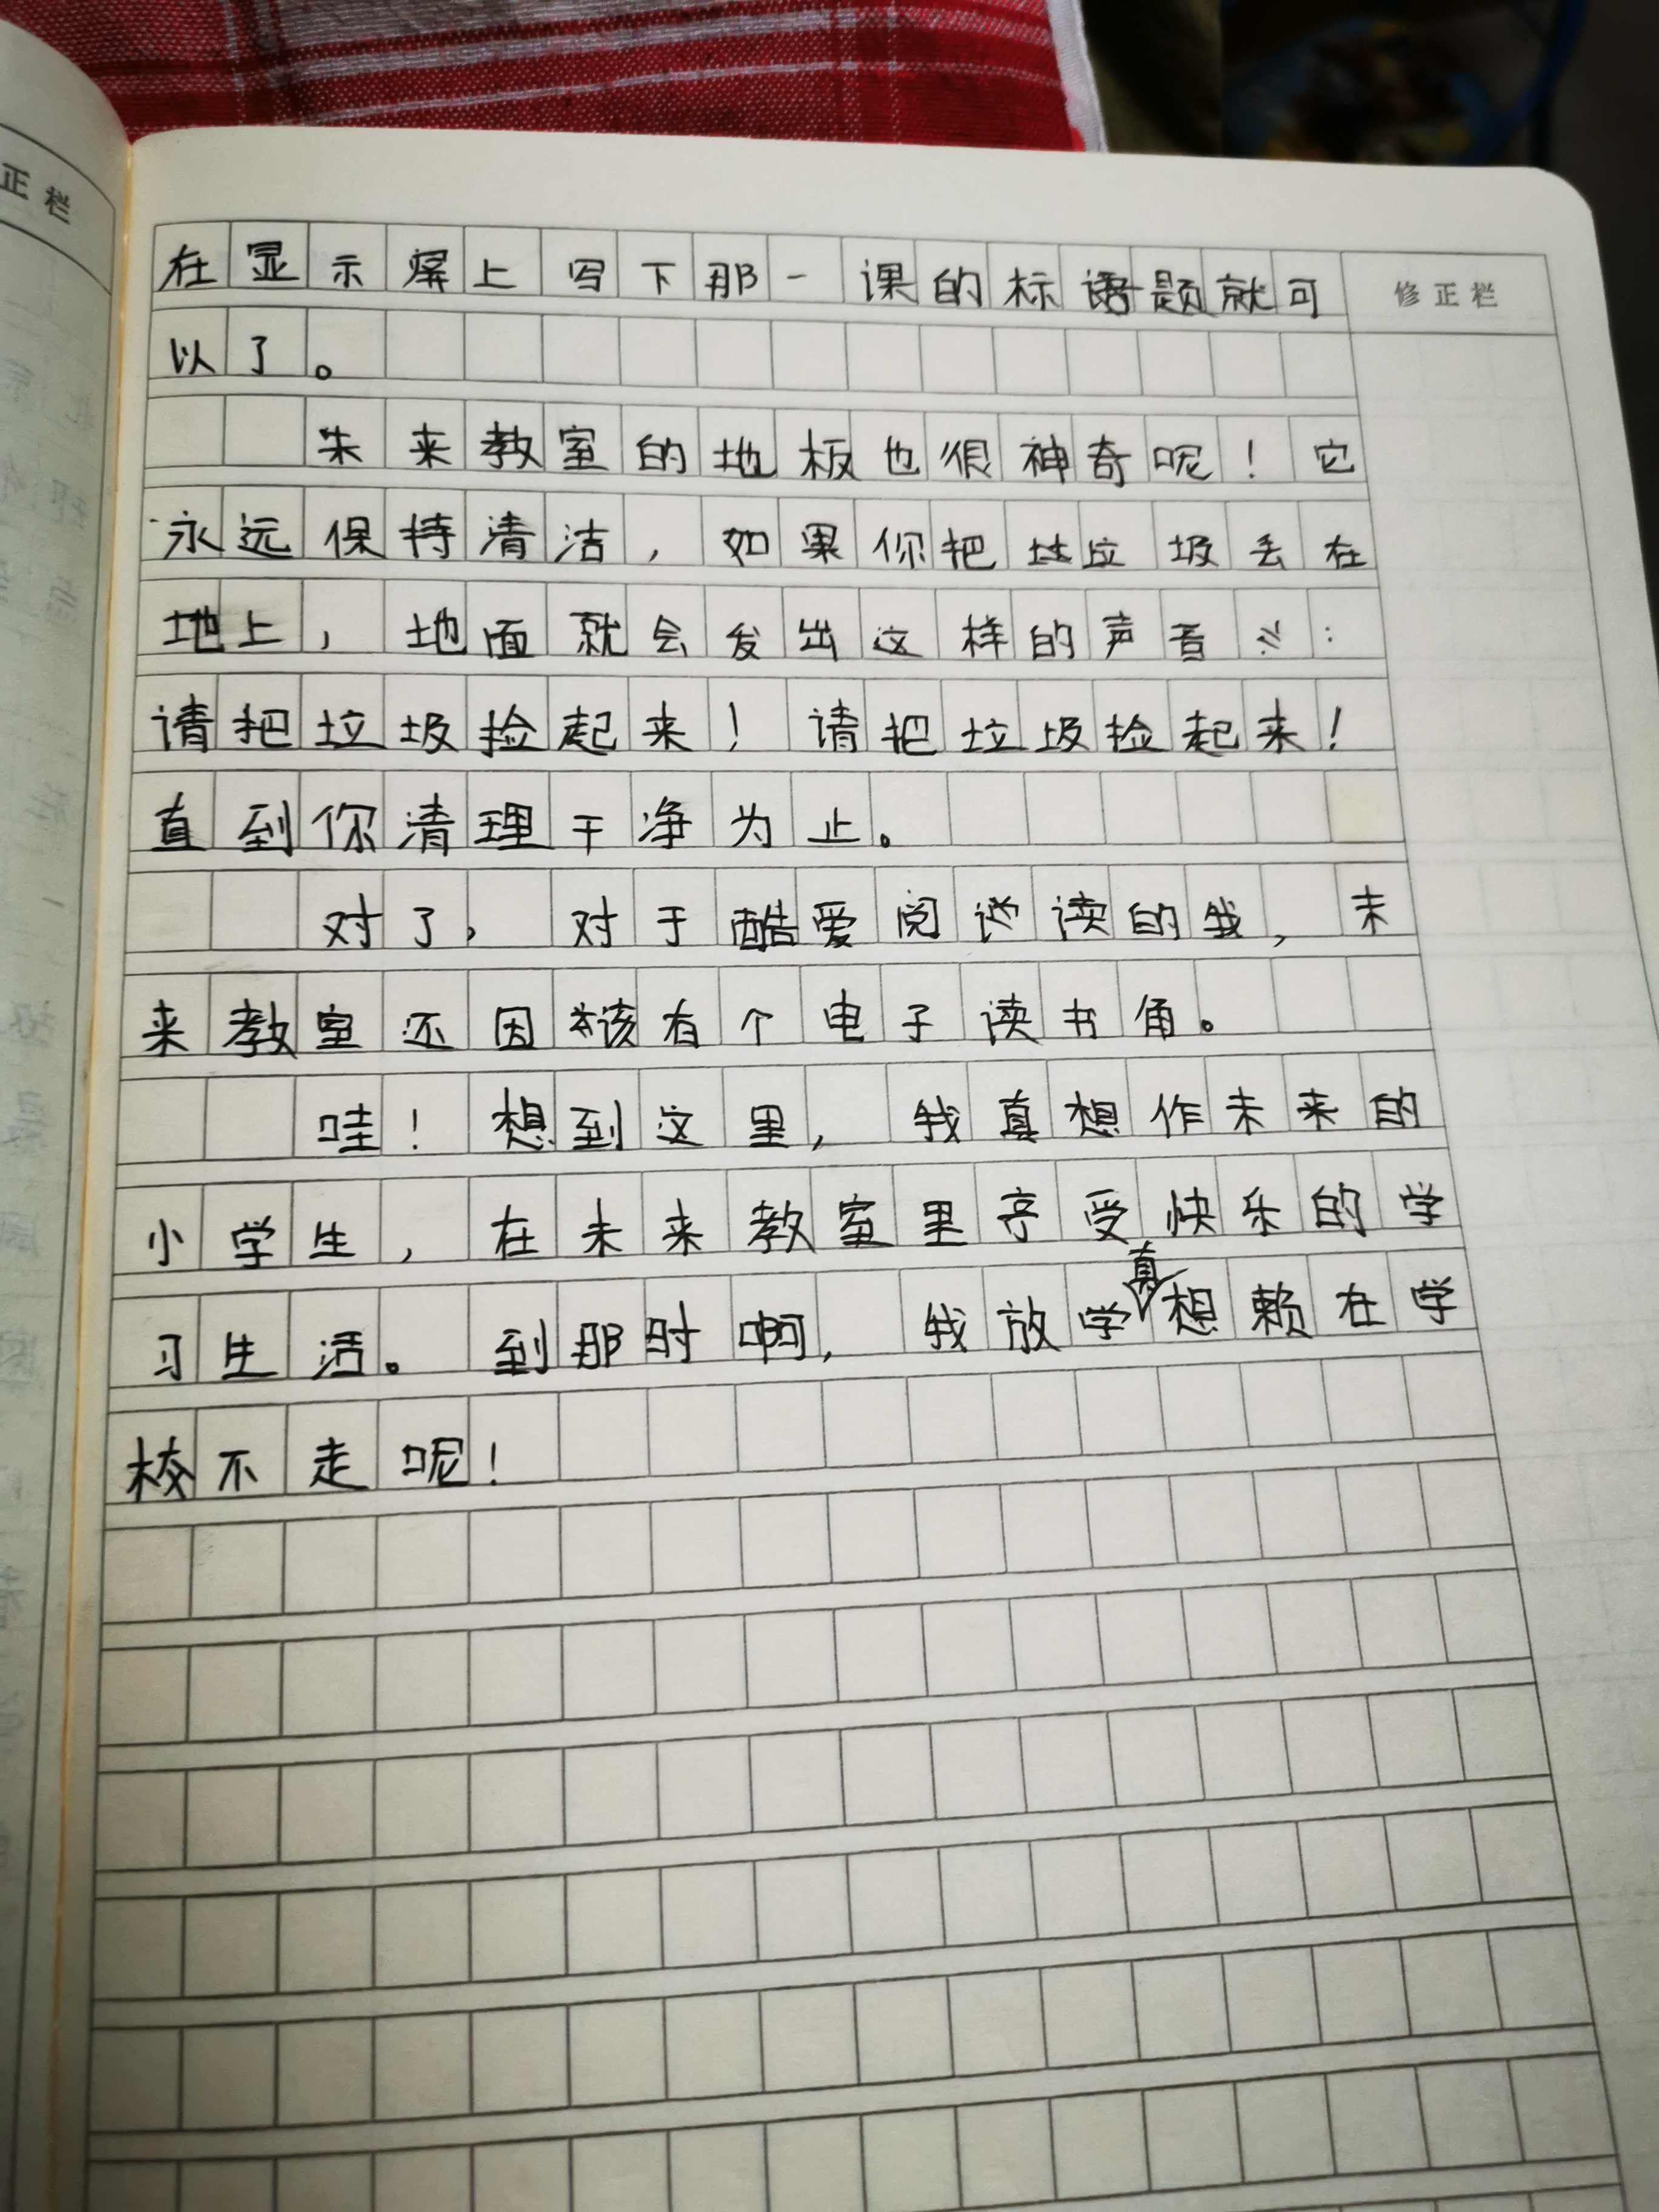 正栏
修正栏
在显示屏上写下那一课的标题就可
以了。
未来教室的地板也很神奇呢！它
永远保持清洁，如果你把垃圾丢在
地上，地面就会发出这样的声音：
请把垃圾捡起来！请把垃圾捡起来！
直到你清理干净为止。
对了，对于酷爱阅读的我，未
来教室还因该有个电子读书角。
哇！想到这里，我真想作未来的
小学生，在未来教室里享受快乐的学
习生活。到那时啊，我放学真想赖在学
校不走呢！